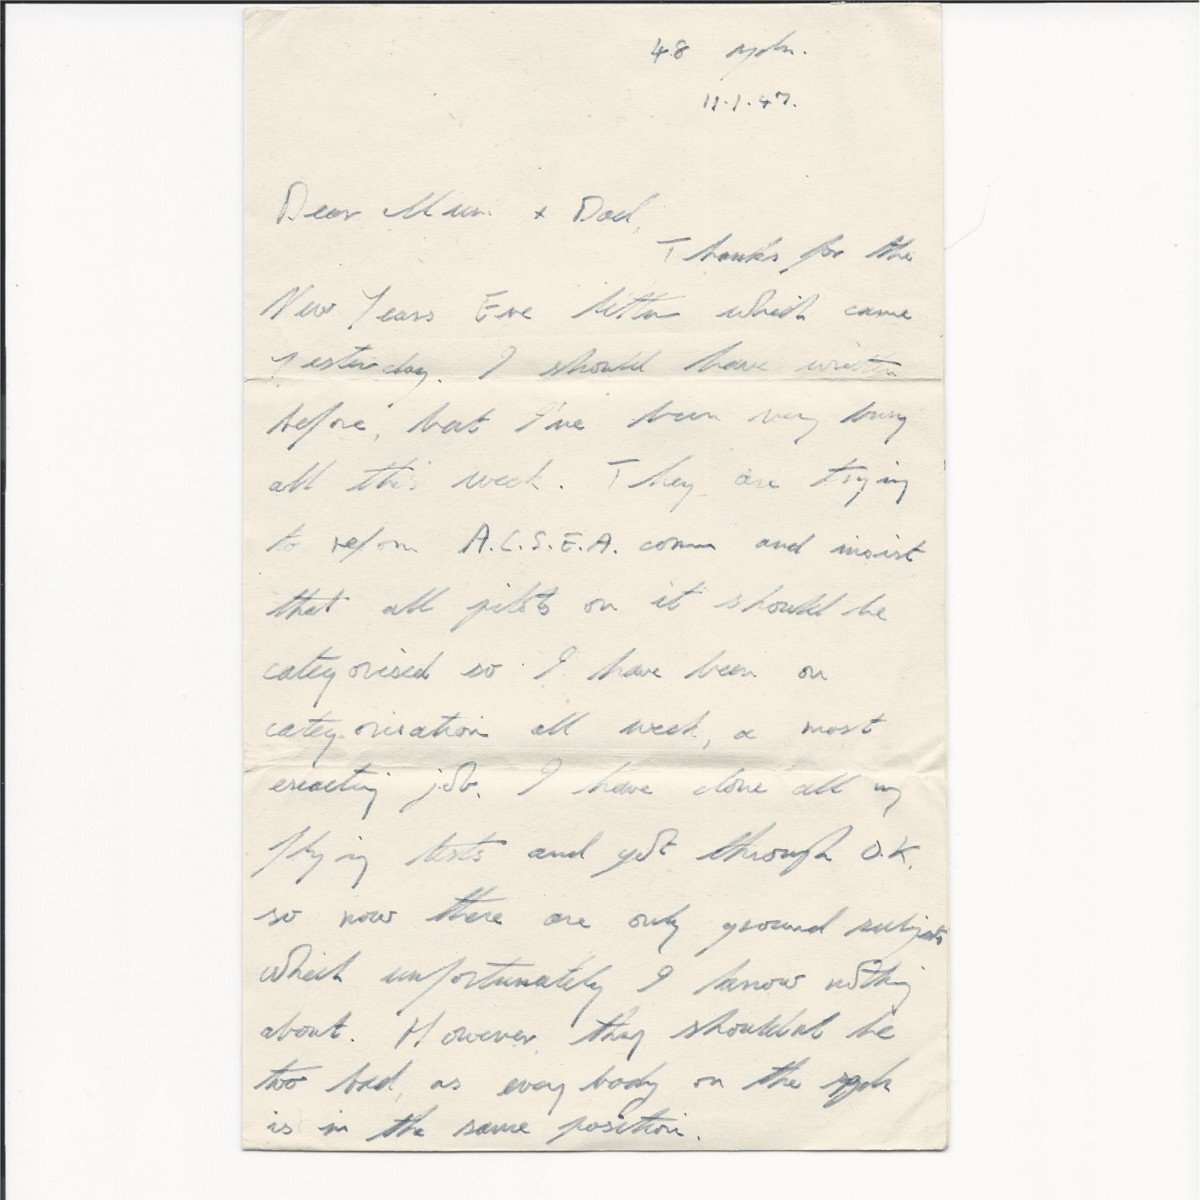 48 sqdn.
11.1.47.
Dear Mum + Dad,
Thanks for the
New Years Eve letter which came
yesterday. I should have written
before, but I've been very busy
all this week. They are trying
to reform A.C.S.E.A. comm and insist
that all pilots on it should be
categorised so I have been on
categorisation all week, a most
exacting job. I have done all my
flying tests and got through O.K.
so now there are only ground subjects
which unfortunately I know nothing
about. However they shouldnt be
too bad, as everybody on the sqdn
is in the same position.